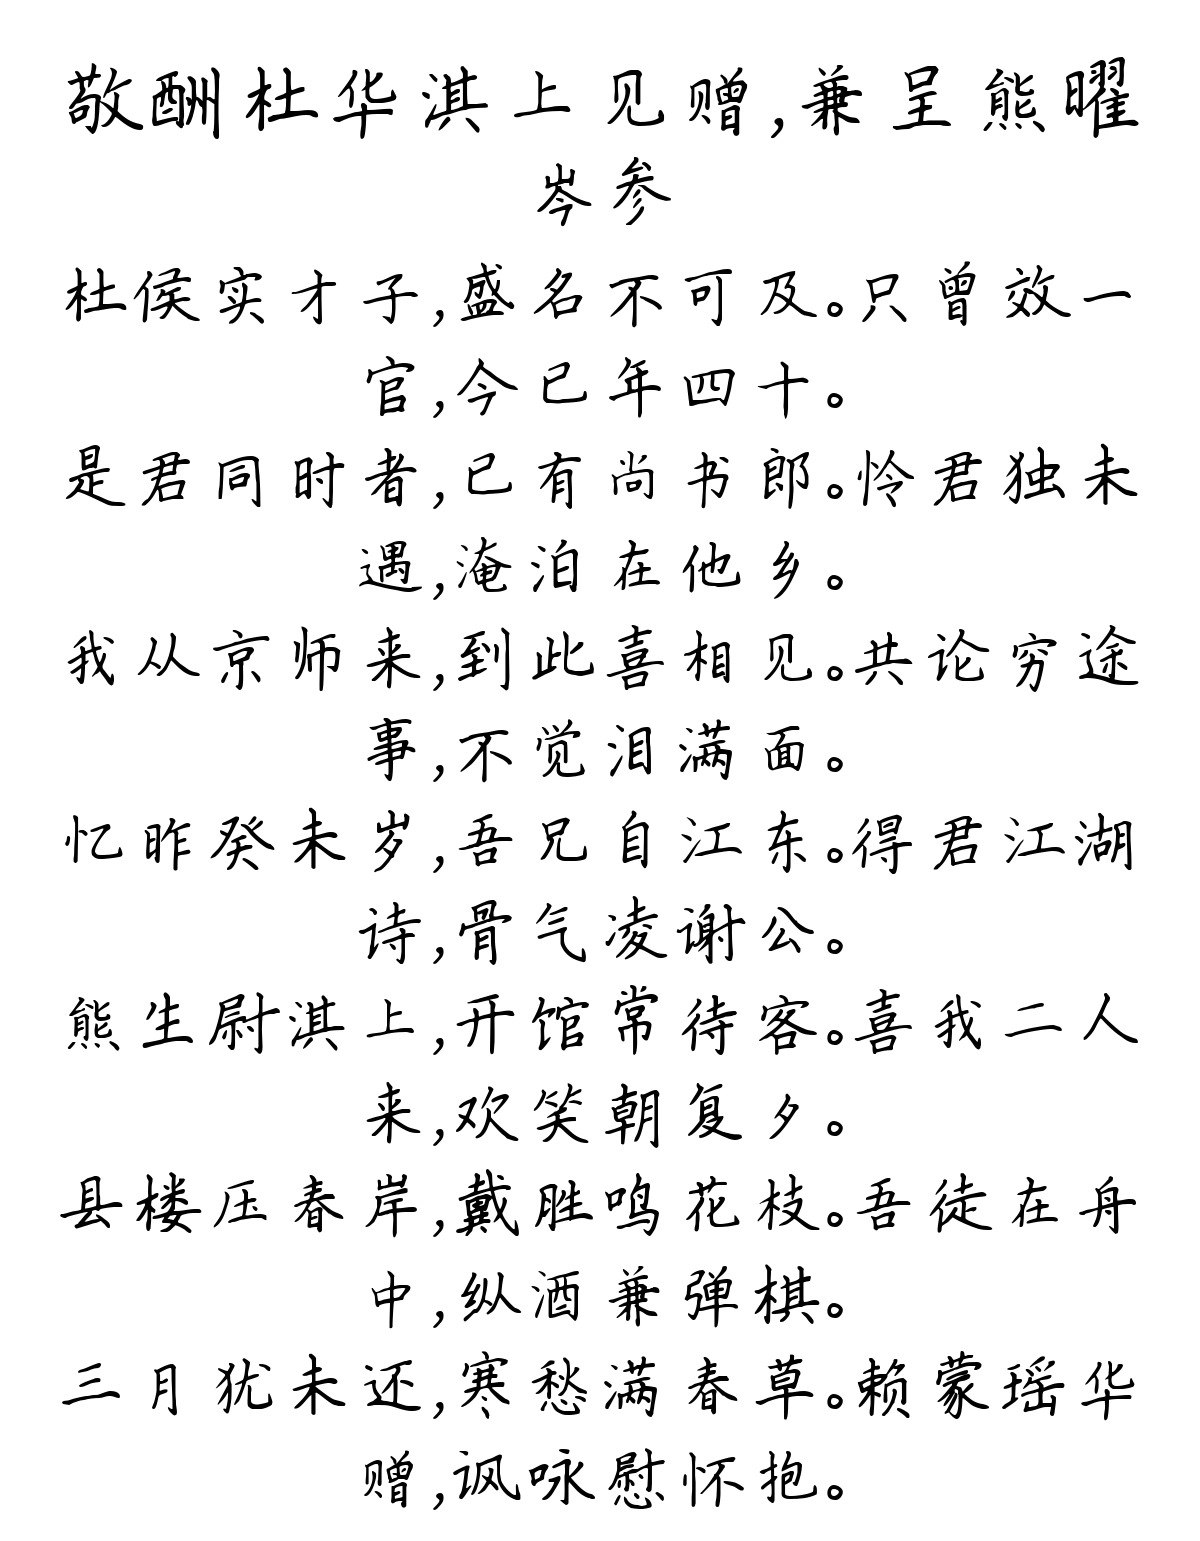 敬酬杜华淇上见赠,兼呈熊曜
岑参
杜侯实才子,盛名不可及。只曾效一
官,今已年四十。
是君同时者,已有尚书郎。怜君独未
遇,淹泊在他乡。
我从京师来,到此喜相见。共论穷途
事,不觉泪满面。
忆昨癸未岁,吾兄自江东。得君江湖
诗,骨气凌谢公。
熊生尉淇上,开馆常待客。喜我二人
来,欢笑朝复夕。
县楼压春岸,戴胜鸣花枝。吾徒在舟
中,纵酒兼弹棋。
三月犹未还,寒愁满春草。赖蒙瑶华
赠,讽咏慰怀抱。